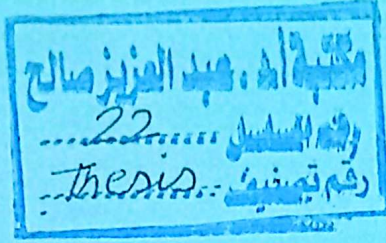 مكتبة أ.د. عبد العزيز صالح
رقم المسلسل ....22....
رقم تصنيف ..Thesis..